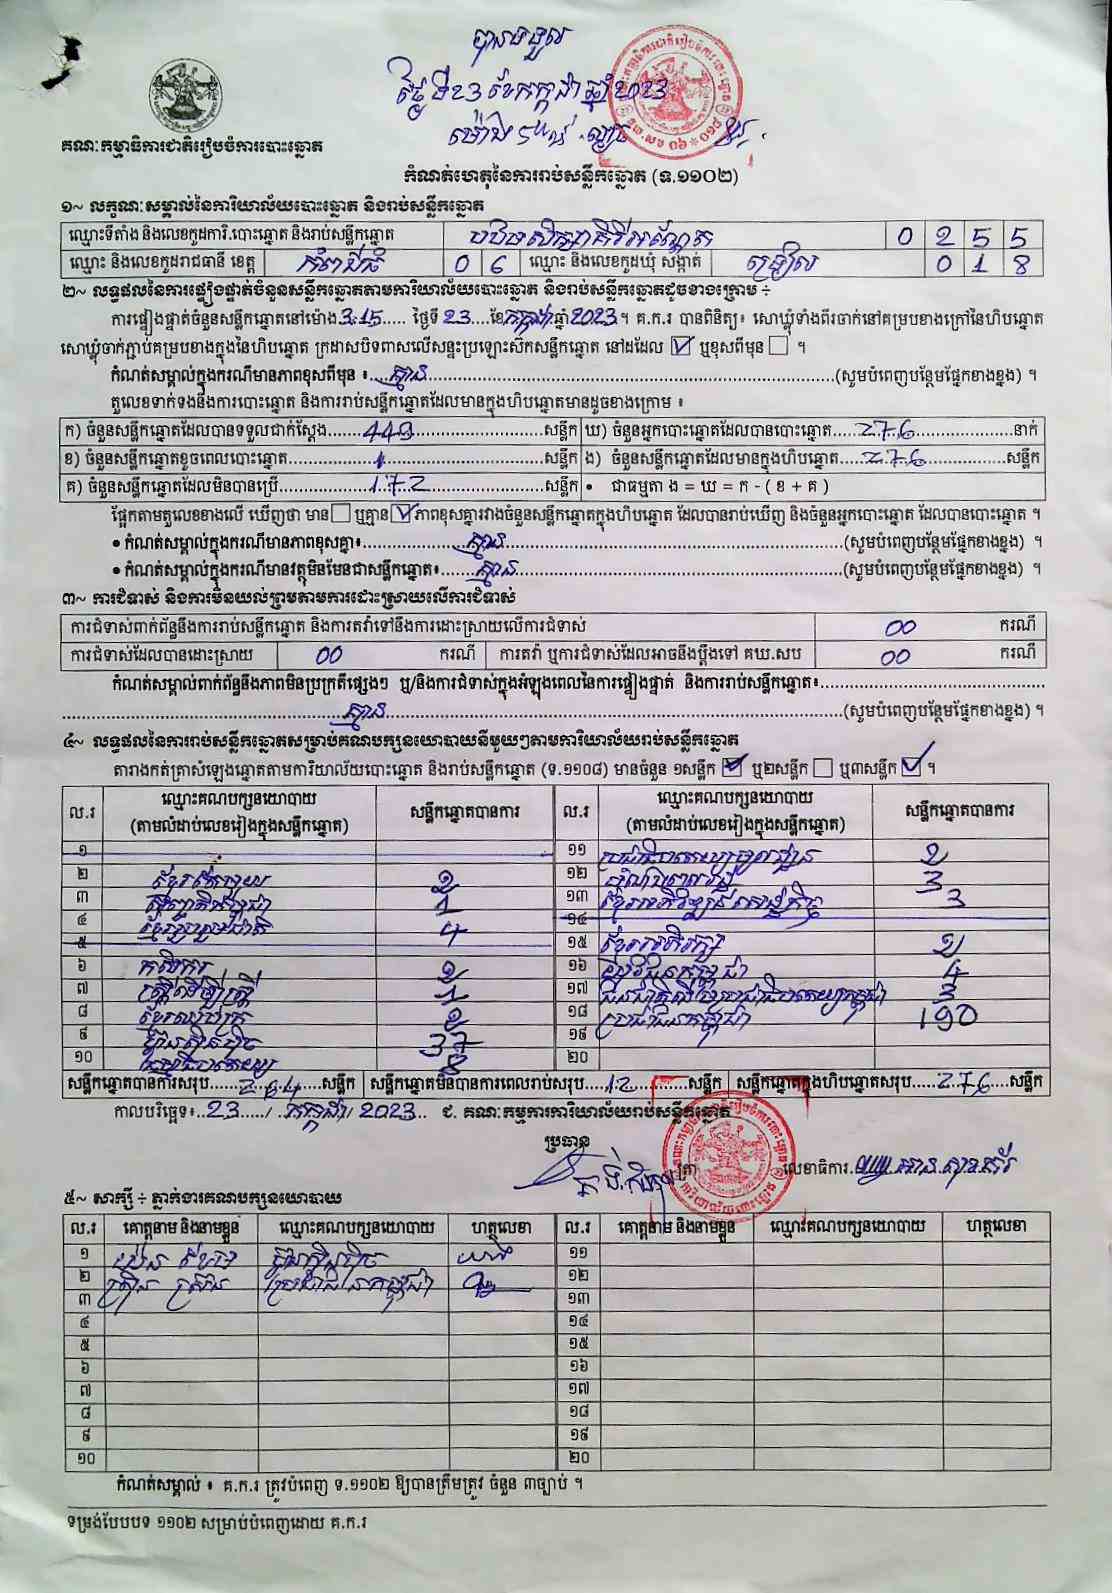 បានទទួល
ថ្ងៃទី23 ខែកក្កដា ឆ្នាំ2023
ម៉ោង
គណៈកម្មាធិការជាតិរៀបចំការបោះឆ្នោត
កំណត់ហេតុនៃការរាប់សន្លឹកឆ្នោត (ទ.១១០២)
១~ លក្ខណៈសម្គាល់នៃការិយាល័យបោះឆ្នោត និងរាប់សន្លឹកឆ្នោត
ឈ្មោះទីតាំង និងលេខកូដការិ.បោះឆ្នោត និងរាប់សន្លឹកឆ្នោត 0 2 5 5
ឈ្មោះ និងលេខកូដរាជធានី ខេត្ត កំពង់ធំ 0 6 ឈ្មោះ និងលេខកូដឃុំ សង្កាត់ 0 1 8
២~ លទ្ធផលនៃការផ្ទៀងផ្ទាត់ចំនួនសន្លឹកឆ្នោតតាមការិយាល័យបោះឆ្នោត និងរាប់សន្លឹកឆ្នោតដូចខាងក្រោម ÷
ការផ្ទៀងផ្ទាត់ចំនួនសន្លឹកឆ្នោតនៅម៉ោង 3:15 ថ្ងៃទី 23 ខែ កក្កដា ឆ្នាំ 2023 ។ គ.ក.រ បានពិនិត្យ៖ សោឃ្លុំទាំងពីរចាក់នៅគម្របខាងក្រៅនៃហិបឆ្នោត
សោឃ្លុំចាក់ភ្ជាប់គម្របខាងក្នុងនៃហិបឆ្នោត ក្រដាសបិទពាសលើសន្ទះប្រឡោះស៊កសន្លឹកឆ្នោត នៅដដែល ☑ ឬខុសពីមុន ☐ ។
កំណត់សម្គាល់ក្នុងករណីមានភាពខុសពីមុន ៖ គ្មាន (សូមបំពេញបន្ថែមផ្នែកខាងខ្នង) ។
តួលេខទាក់ទងនឹងការបោះឆ្នោត និងការរាប់សន្លឹកឆ្នោតដែលមានក្នុងហិបឆ្នោតមានដូចខាងក្រោម ៖
ក) ចំនួនសន្លឹកឆ្នោតដែលបានទទួលជាក់ស្តែង 449 សន្លឹក ឃ) ចំនួនអ្នកបោះឆ្នោតដែលបានបោះឆ្នោត 276 នាក់
ខ) ចំនួនសន្លឹកឆ្នោតខូចពេលបោះឆ្នោត 1 សន្លឹក ង) ចំនួនសន្លឹកឆ្នោតដែលមានក្នុងហិបឆ្នោត 276 សន្លឹក
គ) ចំនួនសន្លឹកឆ្នោតដែលមិនបានប្រើ 172 សន្លឹក • ជាធម្មតា ង = ឃ = ក - ( ខ + គ )
ផ្អែកតាមតួលេខខាងលើ ឃើញថា មាន ☐ ឬគ្មាន ☑ ភាពខុសគ្នារវាងចំនួនសន្លឹកឆ្នោតក្នុងហិបឆ្នោត ដែលបានរាប់ឃើញ និងចំនួនអ្នកបោះឆ្នោត ដែលបានបោះឆ្នោត ។
• កំណត់សម្គាល់ក្នុងករណីមានភាពខុសគ្នា៖ គ្មាន (សូមបំពេញបន្ថែមផ្នែកខាងខ្នង) ។
• កំណត់សម្គាល់ក្នុងករណីមានវត្ថុមិនមែនជាសន្លឹកឆ្នោត៖ គ្មាន (សូមបំពេញបន្ថែមផ្នែកខាងខ្នង) ។
៣~ ការជំទាស់ និងការមិនយល់ព្រមតាមការដោះស្រាយលើការជំទាស់
ការជំទាស់ពាក់ព័ន្ធនឹងការរាប់សន្លឹកឆ្នោត និងការតវ៉ាទៅនឹងការដោះស្រាយលើការជំទាស់ 00 ករណី
ការជំទាស់ដែលបានដោះស្រាយ 00 ករណី ការតវ៉ា ឬការជំទាស់ដែលអាចនឹងប្តឹងទៅ គឃ.សប 00 ករណី
កំណត់សម្គាល់ពាក់ព័ន្ធនឹងភាពមិនប្រក្រតីផ្សេងៗ ឬ/និងការជំទាស់ក្នុងអំឡុងពេលនៃការផ្ទៀងផ្ទាត់ និងការរាប់សន្លឹកឆ្នោត៖
គ្មាន (សូមបំពេញបន្ថែមផ្នែកខាងខ្នង) ។
៤~ លទ្ធផលនៃការរាប់សន្លឹកឆ្នោតសម្រាប់គណបក្សនយោបាយនីមួយៗតាមការិយាល័យរាប់សន្លឹកឆ្នោត
តារាងកត់ត្រាសំឡេងឆ្នោតតាមការិយាល័យបោះឆ្នោត និងរាប់សន្លឹកឆ្នោត (ទ.១១០៨) មានចំនួន ១សន្លឹក ☑ ឬ២សន្លឹក ☐ ឬ៣សន្លឹក ☑ ។
ល.រ ឈ្មោះគណបក្សនយោបាយ (តាមលំដាប់លេខរៀងក្នុងសន្លឹកឆ្នោត) សន្លឹកឆ្នោតបានការ ល.រ ឈ្មោះគណបក្សនយោបាយ (តាមលំដាប់លេខរៀងក្នុងសន្លឹកឆ្នោត) សន្លឹកឆ្នោតបានការ
១ ១១
២ ខ្មែរតែមួយ ១២ 3
៣ 1 ១៣ 3
៤ 4 ១៤
៥ ១៥
៦ កសិករ ១៦ 4
៧ ស្ត្រីដើម្បីស្ត្រី 1 ១៧ 3
៨ ១៨ ប្រជាជនកម្ពុជា 190
៩ ហ៊្វុនស៊ិនប៉ិច 37 ១៩
១០ 8 ២០
សន្លឹកឆ្នោតបានការសរុប 264 សន្លឹក សន្លឹកឆ្នោតមិនបានការពេលរាប់សរុប 12 សន្លឹក សន្លឹកឆ្នោតក្នុងហិបឆ្នោតសរុប 276 សន្លឹក
កាលបរិច្ឆេទ៖ 23 / កក្កដា / 2023 ជ. គណៈកម្មការការិយាល័យរាប់សន្លឹកឆ្នោត
ប្រធាន
ត្រា លេខាធិការ
៥~ សាក្សី ÷ ភ្នាក់ងារគណបក្សនយោបាយ
ល.រ គោត្តនាម និងនាមខ្លួន ឈ្មោះគណបក្សនយោបាយ ហត្ថលេខា ល.រ គោត្តនាម និងនាមខ្លួន ឈ្មោះគណបក្សនយោបាយ ហត្ថលេខា
១ ហ៊្វុនស៊ិនប៉ិច ១១
២ ប្រជាជនកម្ពុជា ១២
៣ ១៣
៤ ១៤
៥ ១៥
៦ ១៦
៧ ១៧
៨ ១៨
៩ ១៩
១០ ២០
កំណត់សម្គាល់ ៖ គ.ក.រ ត្រូវបំពេញ ទ.១១០២ ឱ្យបានត្រឹមត្រូវ ចំនួន ៣ច្បាប់ ។
ទម្រង់បែបបទ ១១០២ សម្រាប់បំពេញដោយ គ.ក.រ